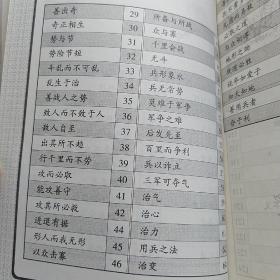 善出奇 29 所备与所战
奇正相生 30 众与寡
势与节 31 千里会战
势险节短 32 无斗
斗乱而不可乱 33 兵形象水
乱生于治 34 兵无常势
善战人之势 35 莫难于军争
致人而不致于人 36 军争之难
敌人自至 37 后发先至
出其所不趋 38 百里而争利
行千里而不劳 39 兵以诈立
攻而必取 40 三军可夺气
能攻善守 41 治气
攻其所必救 42 治心
进退有据 44 治力
形人而我无形 45 用兵之法
以众击寡 46 治变
地形之助
视卒如爱子
知天知地
善用兵者
合于利